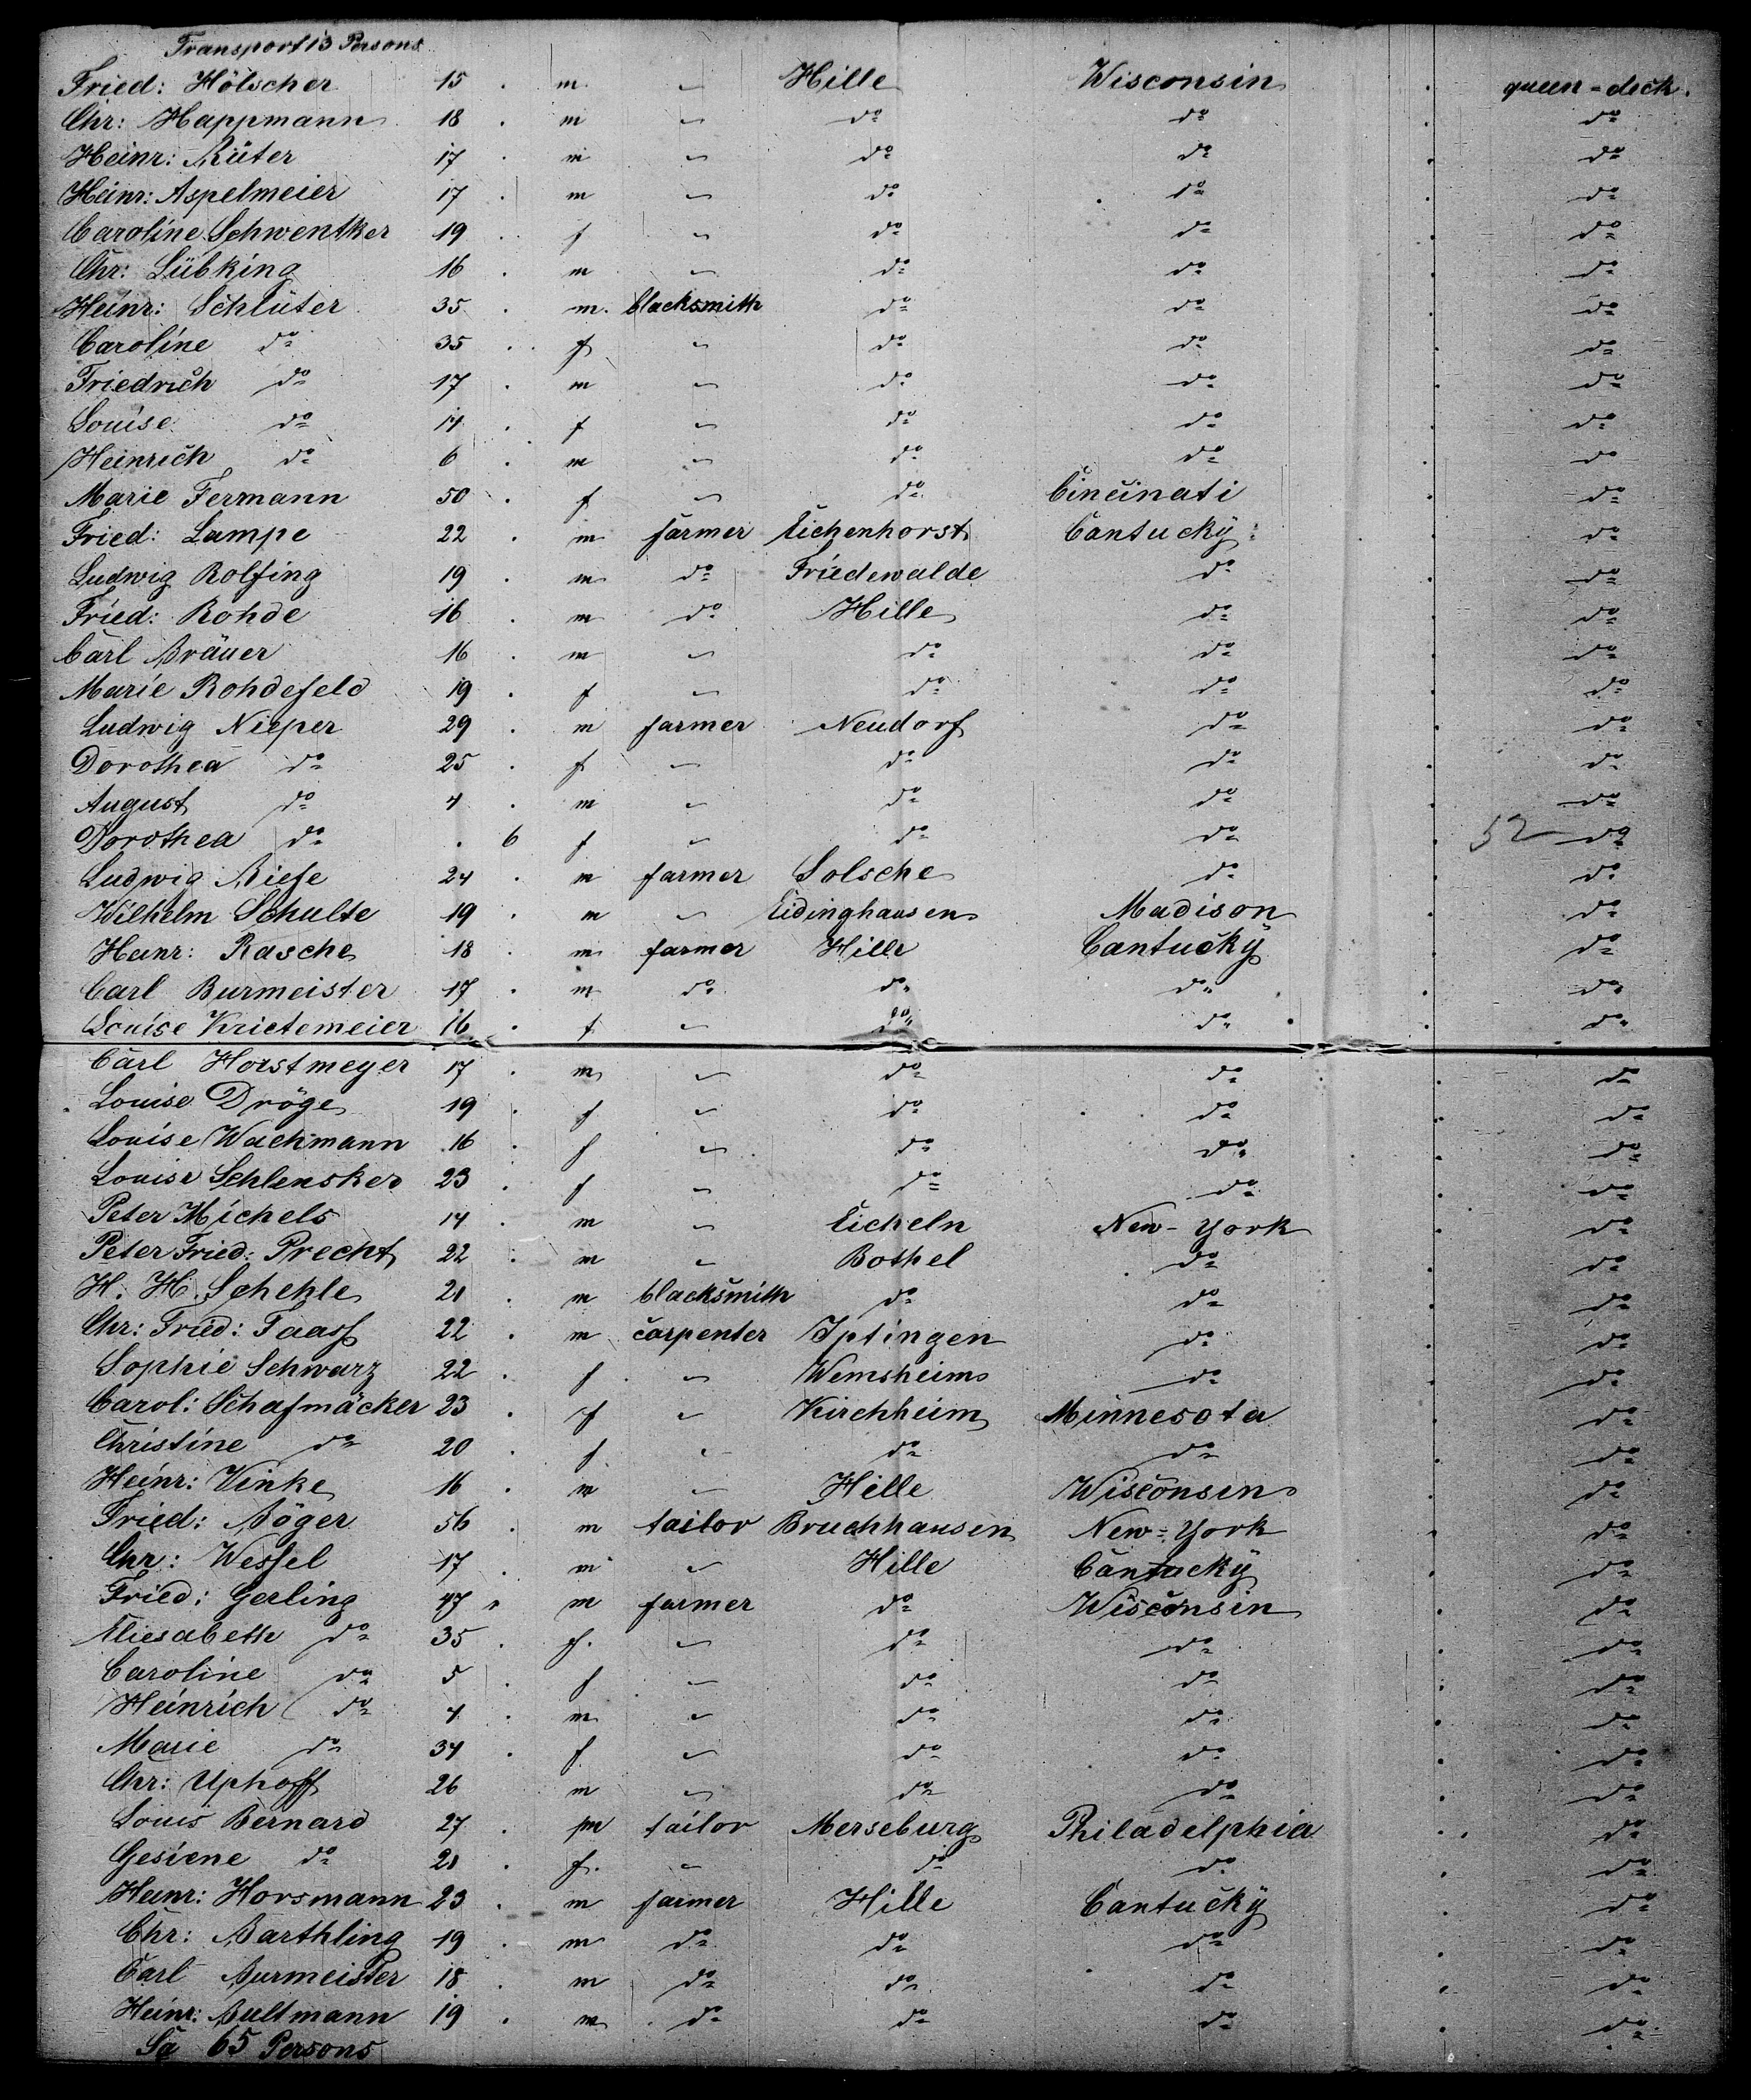 Transport 13 Persons
Fried: Hölscher 15 . m " Hille Wisconsin . queen=deck.
Chr: Happmann 18 . m " do do . do
Heinr: Rüter 17 . m " do do . do
Heinr: Aspelmeier 17 . m " do do . do
Caroline Schwentker 19 . f " do do . do
Chr: Lübking 16 . m " do do . do
Heinr: Schlüter 35 . m. blacksmith do do . do
Caroline do 35 . f " do do . do
Friedrich do 17 . m " do do . do
Louise do 14 . f " do do . do
Heinrich do 6 . m " do do . do
Marie Fermann 50 . f " do Cincinati . do
Fried: Lampe 22 . m farmer Eichenhorst Cantucky . do
Ludwig Rolfing 19 . m do Friedewalde do . do
Fried: Rohde 16 . m do Hille do . do
Carl Bräuer 16 . m " do do . do
Marie Rohdefeld 19 . f " do do . do
Ludwig Nieper 29 . m farmer Neudorf do . do
Dorothea do 25 . f " do do . do
August do 4 . m " do do . do
Dorothea do . 6 f " do do . 52 do
Ludwig Riese 24 . m farmer Solsche do . do
Wilhelm Schulte 19 . m " Eidinghausen Madison . do
Heinr: Rasche 18 . m farmer Hille Cantucky . do
Carl Burmeister 17 . m do do do . do
Louise Krietemeier 16 . f " do do . do
Carl Horstmeyer 17 . m " do do . do
Louise Dröge 19 . f " do do . do
Louise Wachmann 16 . f " do do . do
Louise Schlensker 23 . f " do do . do
Peter Michels 14 . m " Eicheln New-York . do
Peter Fried: Precht 22 . m " Bothel do . do
H. H. Schehle 21 . m blacksmith do do . do
Chr: Fried: Faass 22 . m carpenter Iptingen do . do
Sophie Schwarz 22 . f " Wemsheim do . do
Carol: Schafmäcker 23 . f " Kirchheim Minnesota . do
Christine do 20 . f " do do . do
Heinr: Vinke 16 . m " Hille Wisconsin . do
Fried: Böger 56 . m tailor Bruchhausen New=York . do
Chr: Wessel 17 . m " Hille Cantucky . do
Fried: Gerling 47 . m farmer do Wisconsin . do
Eliesabeth do 35 . f. " do do . do
Caroline do 5 . f " do do . do
Heinrich do 4 . m " do do . do
Marie do 34 . f " do do . do
Chr: Uphoff 26 m " do do . do
Louis Bernard 27 . m tailor Merseburg Philadelphia . do
Gesiene do 21 . f. " do do . do
Heinr: Horsmann 23 . m farmer Hille Cantucky . do
Chr: Barthling 19 . m do do do . do
Carl Burmeister 18 . m do do do . do
Heinr: Bultmann 19 . m do do do . do
Sa 65 Persons